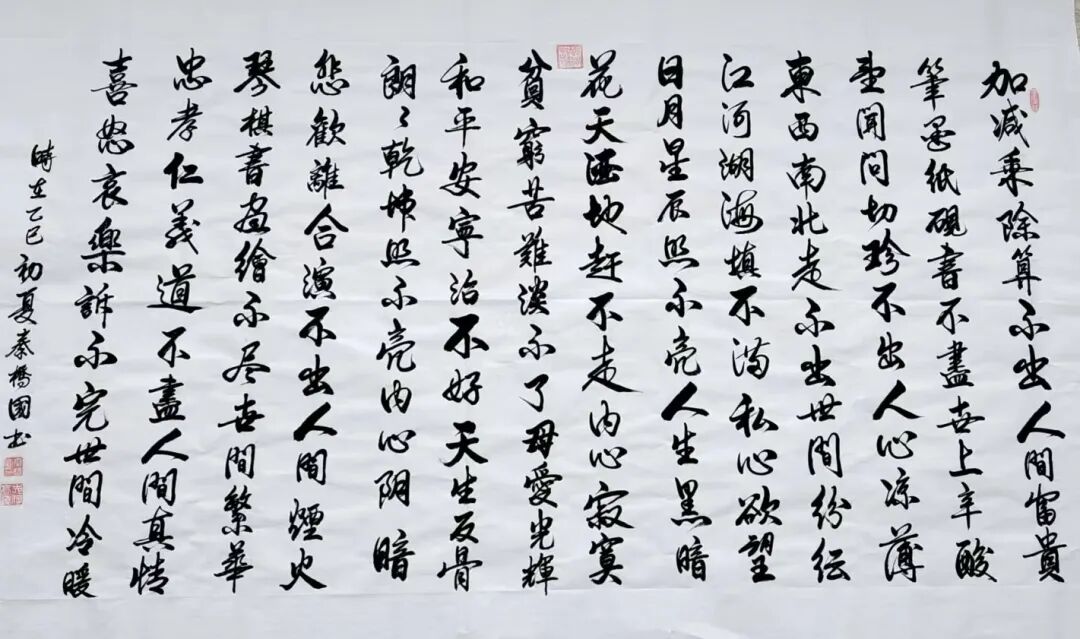 加减乘除算不出人間富貴
筆墨纸硯書不盡世上辛酸
望聞问切珍不出人心凉薄
東西南北走不出世間纷纭
江河湖海填不满私心欲望
日月星辰照不亮人生黑暗
花天酒地赶不走内心寂寞
貧窮苦難淡不了母愛光輝
和平安寧治不好天生反骨
朗々乾坤照不亮内心阴暗
悲歡離合演不出人間煙火
琴棋書畫繪不尽世間繁華
忠孝仁義道不盡人間真情
喜怒哀樂訴不完世間冷暖
時在乙巳初夏秦橋國书